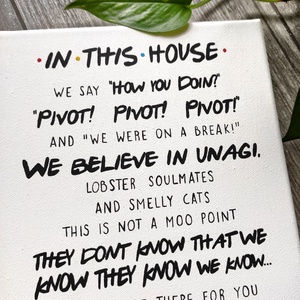 ·IN·THIS·HOUSE·
WE SAY "HOW YOU DOIN?"
"PIVOT! PIVOT! PIVOT!"
AND "WE WERE ON A BREAK!"
WE BELIEVE IN UNAGI,
LOBSTER SOULMATES
AND SMELLY CATS
THIS IS NOT A MOO POINT
THEY DONT KNOW THAT WE
KNOW THEY KNOW WE KNOW...
THERE FOR YOU